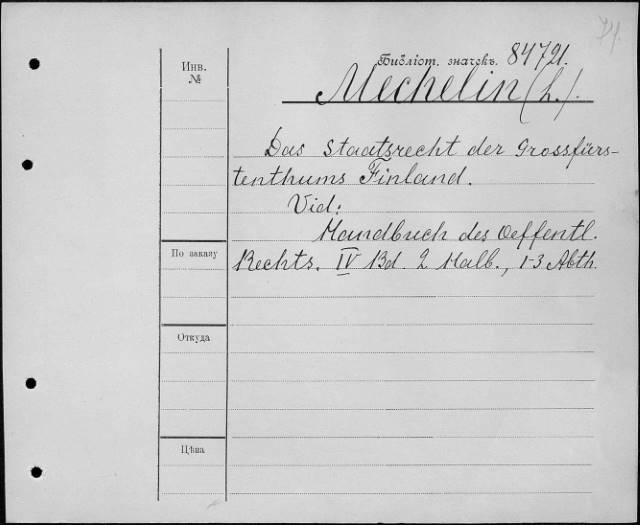 74.
Библіот. значекъ. 84721.
Инв.
№
Mechelin (L.).
Das Staatsrecht der Grossfürs-
tenthums Finland.
Vid:
Handbuch des Oeffentl.
По заказу
Rechts. IV Bd. 2 Halb., 1-3 Abth.
Откуда
Цѣна